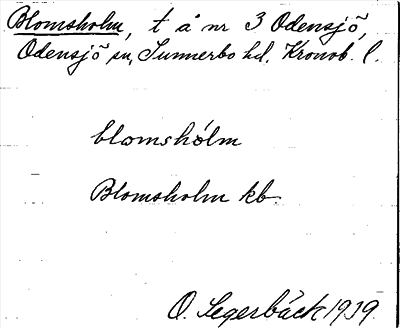 Blomsholm, t å nr 3 Odensjö,
Odensjö sn, Sunnerbo hd. Kronob. l.
blomshólm
Blomsholm kb.
O. Segerbäck 1939.